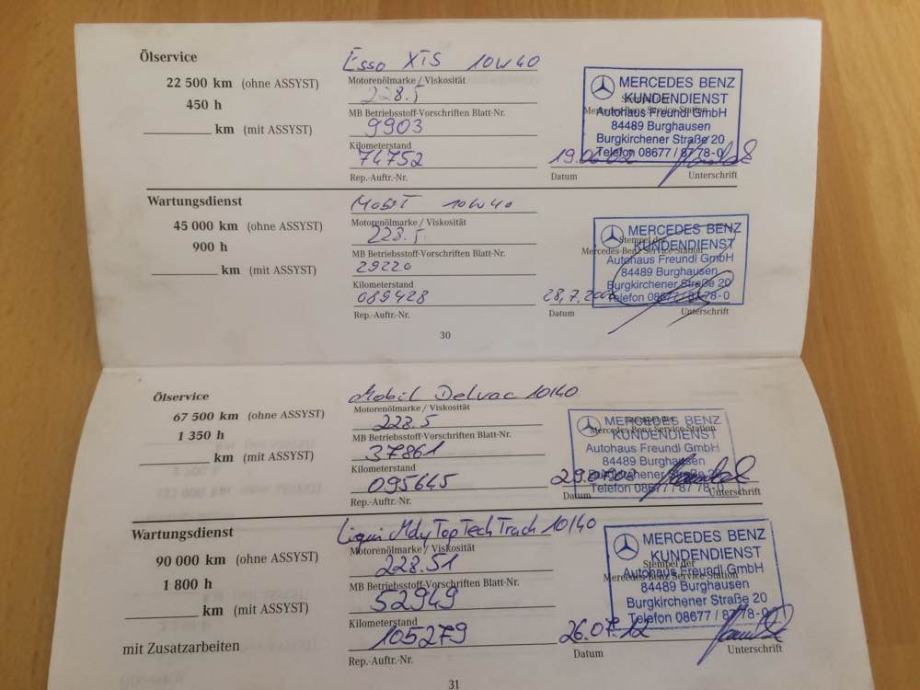 Ölservice
22 500 km (ohne ASSYST)
450 h
km (mit ASSYST)
Esso XTS 10W40
Motorenölmarke / Viskosität
228.5
MB Betriebsstoff-Vorschriften Blatt-Nr.
9903
Kilometerstand
74752
Rep.-Auftr.-Nr.
Datum
Unterschrift
MERCEDES BENZ
KUNDENDIENST
Autohaus Freundl GmbH
Mercedes-Benz Service-Station
84489 Burghausen
Burgkirchener Straße 20
Telefon 08677 / 87 78-0
Wartungsdienst
45 000 km (ohne ASSYST)
900 h
km (mit ASSYST)
10W40
Motorenölmarke / Viskosität
228.5
MB Betriebsstoff-Vorschriften Blatt-Nr.
29220
Kilometerstand
089428
Rep.-Auftr.-Nr.
28.7.
Datum
Unterschrift
MERCEDES BENZ
Stempel der
KUNDENDIENST
Mercedes-Benz Service-Station
Autohaus Freundl GmbH
84489 Burghausen
Burgkirchener Straße 20
Telefon 08677 / 87 78-0
30
Ölservice
67 500 km (ohne ASSYST)
1 350 h
km (mit ASSYST)
Mobil Delvac 10/40
Motorenölmarke / Viskosität
228.5
MB Betriebsstoff-Vorschriften Blatt-Nr.
37861
Kilometerstand
095645
Rep.-Auftr.-Nr.
Datum
Unterschrift
MERCEDES BENZ
Mercedes Benz Service-Station
KUNDENDIENST
Autohaus Freundl GmbH
84489 Burghausen
Burgkirchener Straße 20
Telefon 08677 / 87 78-0
Wartungsdienst
90 000 km (ohne ASSYST)
1 800 h
km (mit ASSYST)
mit Zusatzarbeiten
Liqui Moly Top Tech Truck 10/40
Motorenölmarke / Viskosität
228.51
MB Betriebsstoff-Vorschriften Blatt-Nr.
52949
Kilometerstand
105279
Rep.-Auftr.-Nr.
26.07.12
Datum
Unterschrift
MERCEDES BENZ
KUNDENDIENST
Stempel der
Autohaus Freundl GmbH
Mercedes-Benz Service-Station
84489 Burghausen
Burgkirchener Straße 20
Telefon 08677 / 87 78-0
31